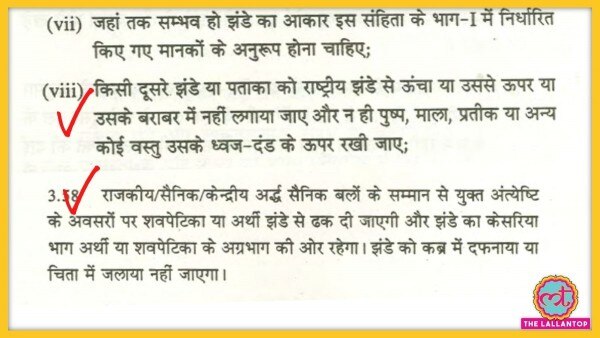 (vii) जहां तक सम्भव हो झंडे का आकार इस संहिता के भाग-I में निर्धारित
किए गए मानकों के अनुरूप होना चाहिए;
(viii) किसी दूसरे झंडे या पताका को राष्ट्रीय झंडे से ऊंचा या उससे ऊपर या
उसके बराबर में नहीं लगाया जाए और न ही पुष्प, माला, प्रतीक या अन्य
कोई वस्तु उसके ध्वज-दंड के ऊपर रखी जाए;
3.58 राजकीय/सैनिक/केन्द्रीय अर्द्ध सैनिक बलों के सम्मान से युक्त अंत्येष्टि
के अवसरों पर शवपेटिका या अर्थी झंडे से ढक दी जाएगी और झंडे का केसरिया
भाग अर्थी या शवपेटिका के अग्रभाग की ओर रहेगा। झंडे को कब्र में दफनाया या
चिता में जलाया नहीं जाएगा।
लT
THE LALLANTOP